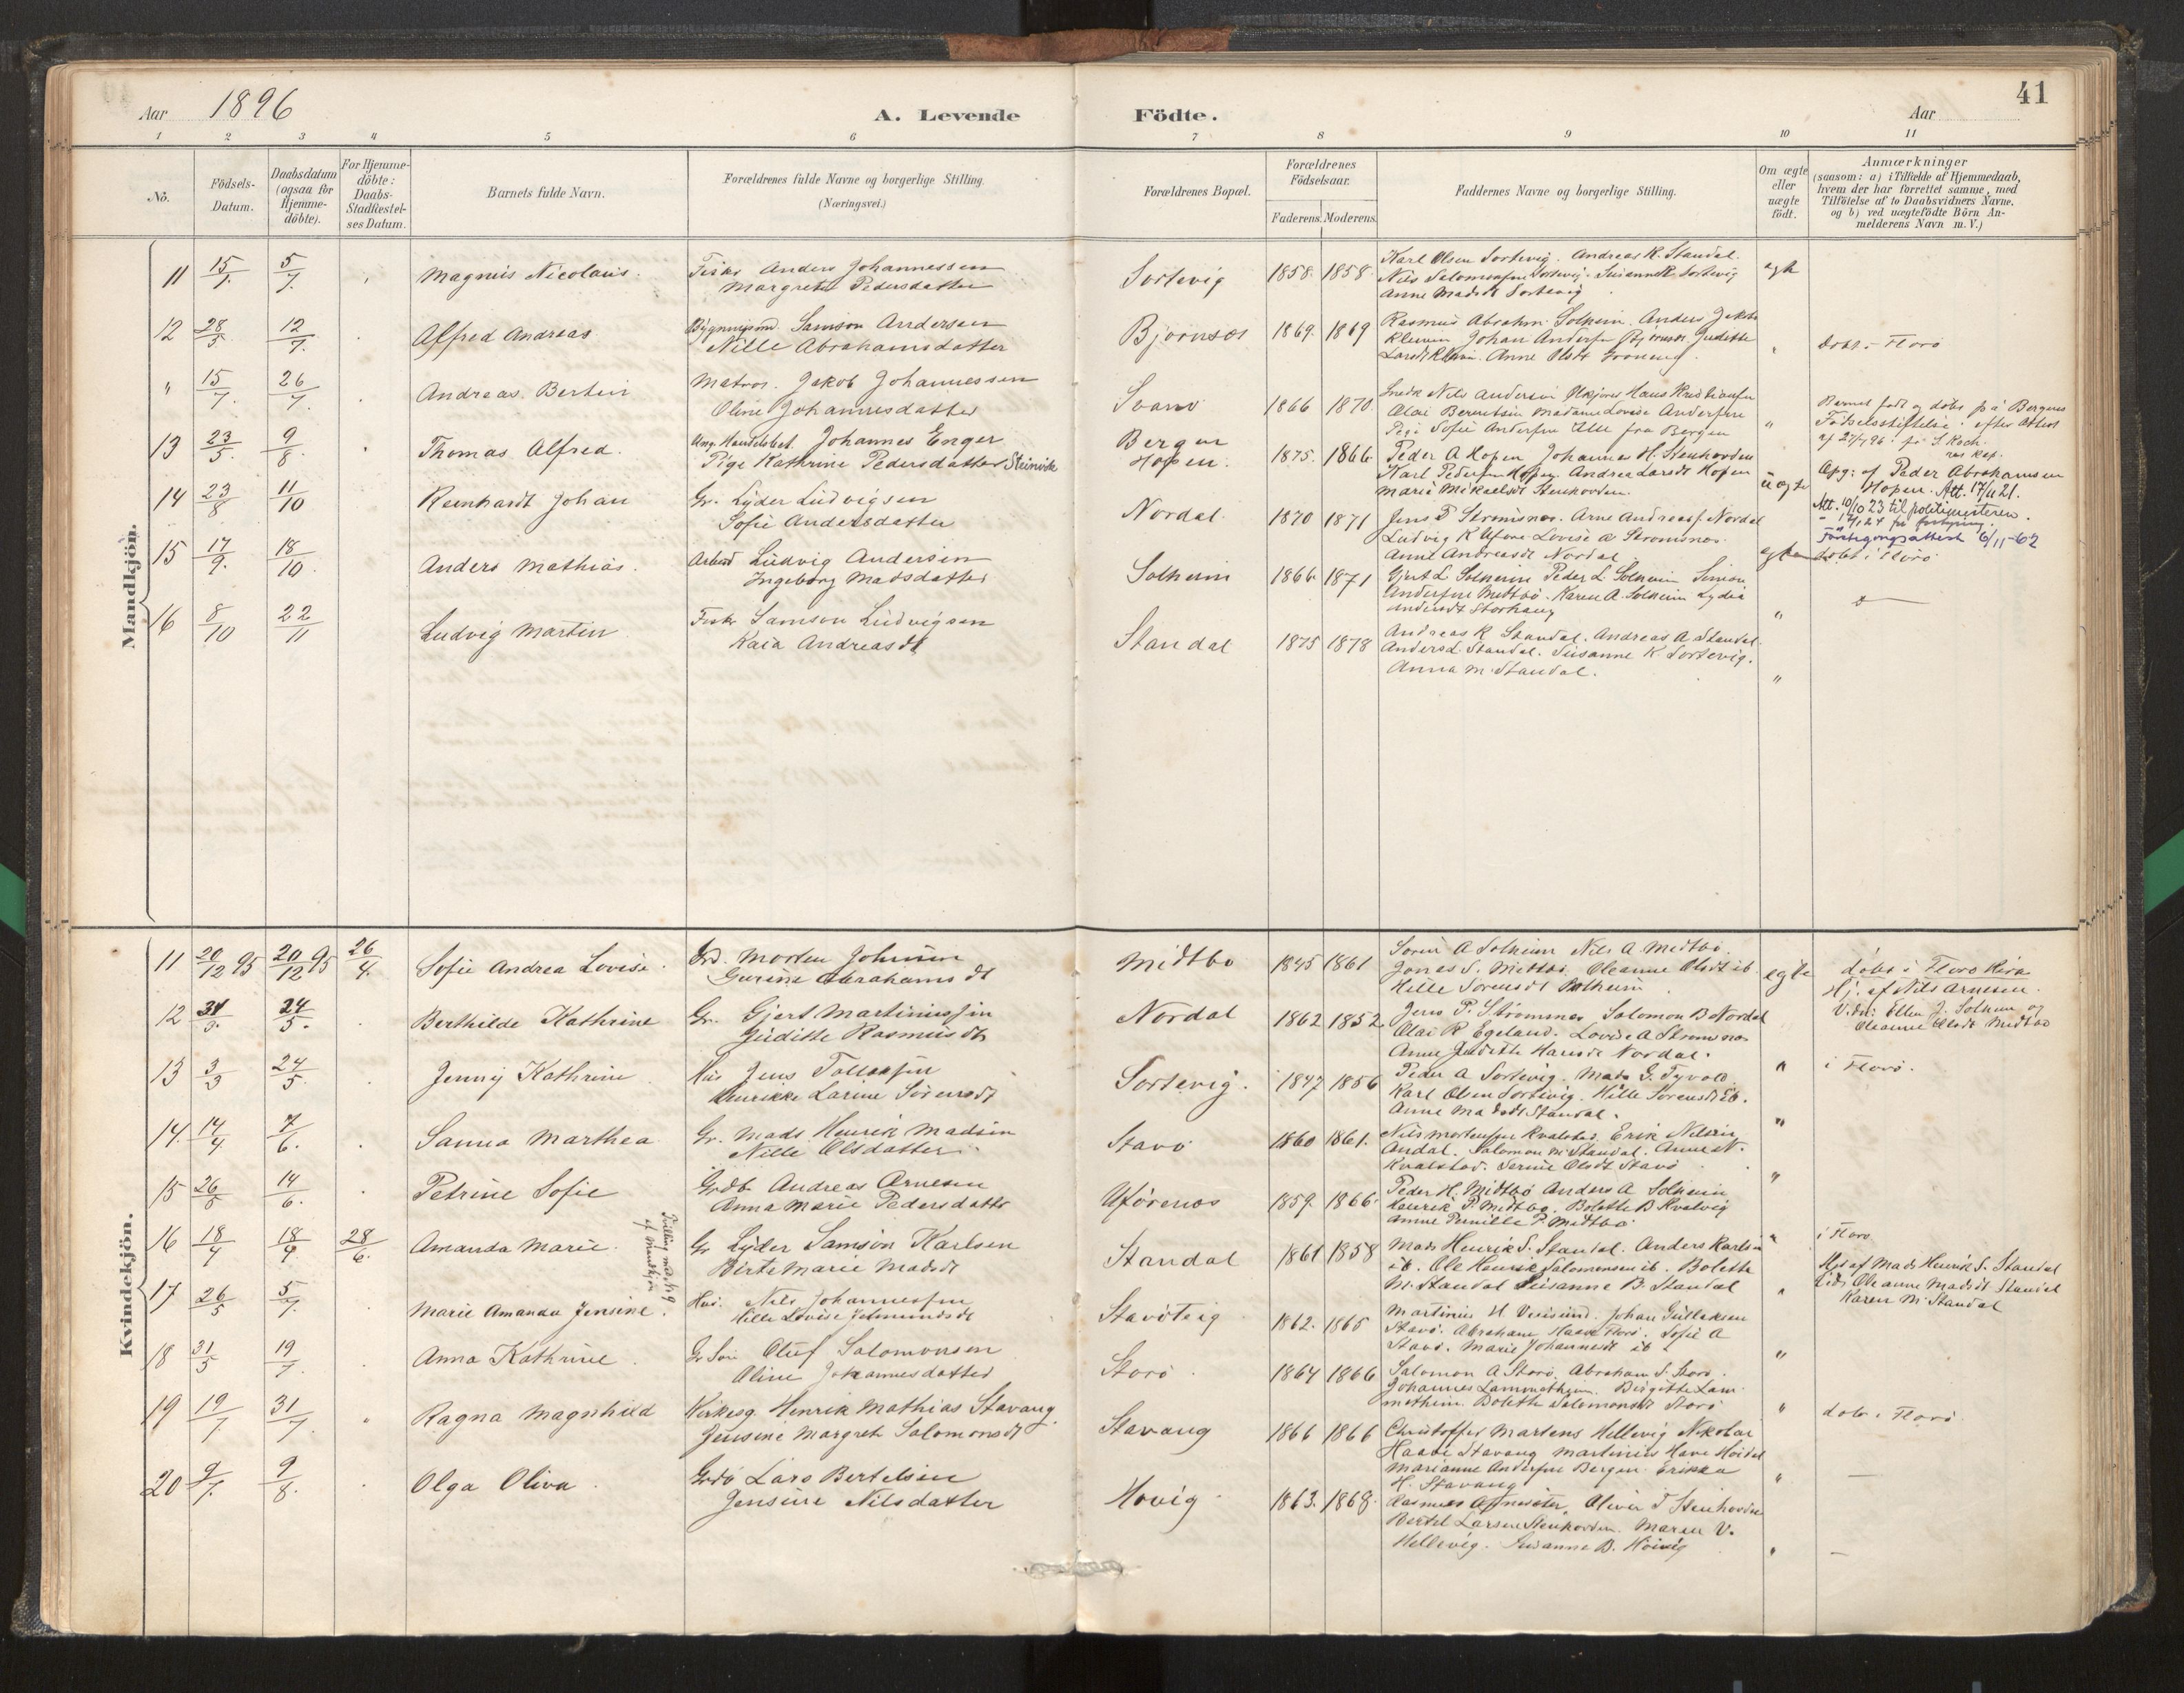 Aar 1896
A. Levende Födte.
Aar
41
1 2 3 4 5 6 7 8 9 10 11
No.
Födsels-Datum.
Daabsdatum (ogsaa for Hjemme-döbte).
For Hjemme-döbte: Daabs-Stadfæstel-ses Datum.
Barnets fulde Navn.
Forældrenes fulde Navne og borgerlige Stilling.
(Næringsvei.)
Forældrenes Bopæl.
Forældrenes Födselsaar.
Faderens. Moderens.
Faddernes Navne og borgerlige Stilling.
Om ægte eller uægte födt.
Anmærkninger
(saasom: a) i Tilfælde af Hjemmedaab, hvem der har forrettet samme, med Tilföielse af to Daabsvidners Navne. og b) ved uægtefödte Börn An-melderens Navn m. V.)
Mandkjön.
11 15/7. 5/7. Magnus Nicolaus.
Fisker Anders Johannessen
Margrete Pedersdatter
Sortevig 1858. 1858.
Karl Olsen Sortevig. Andreas R. Standal.
Nils Salomonsen Sortevig. Susanne K. Sortevig
Anne Madsdt Sortevig
12 28/5. 12/7. Alfred Andreas
Samson Andersen
Nille Abrahamsdatter
Bjornsæs 1869. 1869
Rasmus Abrahm. Solheim. Anders Jakobs
Larsdt Anne Olsdt Groneng.
dobt i Floro
" 15/7. 26/7. Andreas Bertin
Matros. Jakob Johannessen
Oline Johannesdatter
Svanø 1866 1870.
Olai Berentsen Madame Lovise Andersen
Pige Sofie Andersen Alle fra Bergen "
Barnet født og døbt på Bergens
Fødselsstiftelse. efter Attest
af 27/7 96. fr S. Koch.
res. kap.
13 23/5. 9/8. Thomas Alfred.
Ung. Handelsbet. Johannes Enger
Pige Kathrine Pedersdatter Steinvik
Bergen
Hopen. 1875. 1866.
Peder A Hopen Johannes H. Stenhovden
Karl Pedersen Hopen. Andrea Larsdt Hopen
Marie Mikaelsdt Stenhovden.
uægte
Opg: af Peder Abrahamsen
Hopen. Att. 17/11 21.
Att. 10/10 23 til politimesteren.
Førstegangsattest 6/11-62
14 23/8 11/10 Reinhardt Johan
Gr. Lyder Ludvigsen
Sofie Andersdatter
Nordal. 1870 1871
Jens P Stromsnes. Arne Andreasf. Nordal
Ludvig K Uføre Lovise A Stromsnes.
Anne Andreasdt Nordal
døbt i Florø
15 17/9. 18/10. Anders Mathias.
Arbeid Ludvig Andersen
Ingeborg Madsdatter
Solheim 1866. 1871
Gjert L Solheim Peder L Solheim Simon
Andersen Midtbø. Karen A. Solheim Lydia
Andersdt Storhaug "
16 8/10 22/11 Ludvig Martin
Fisker Samson Ludvigsen
Kaia Andreasdt
Standal 1875 1878
Andreas R Standal. Andreas A Standal.
Anders L. Standal. Susanne K. Sortevig.
Anna M. Standal. "
Kvindekjön.
11 20/12 95 20/12 95 26/4. Sofie Andrea Lovise.
Morten Johnsen
Gurine Abrahamsdt
Midtbo 1845 1861
Soren A Solheim Nils A. Midtbø.
Jonas S. Midtbø. Oleanne Olsdt ib.
Hille Sorensdt Solheim
egte
døbt i Florø Kirke
Hj. af Nils Arnesen.
Vidn: Ellen J. Solheim og
Oleanne Olsdt Midtbø
12 31/3. 24/5. Berthilde Kathrine
Gr. Gjert Martiniussen
Juditte Rasmusdtr
Nordal 1862 1852
Jens P. Strømsnes Salomon B Nordal
Olai R Egeland. Lovise A Stromsnes
Anne Judithe Hansdt Nordal.
" i Florø.
13 3/3 24/5. Jenny Kathrine
Hus Jens Tollefsen
Henrikke Larine Sørensdt
Sortevig. 1847 1856
Peder A Sortevig. Mads G. Tyvold
Karl Olsen Sortevig. Hille Sorensdt ib.
Anne Madsdt Standal. "
14. 14/4. 7/6. Sanna Marthea
Gr. Mads Henrik Madsen
Nille Olsdatter.
Stavø 1860 1861.
Nils Mortensen Kvalstad. Erik Nilsen
Andal. Salomon M. Standal. Anne N.
Kvalstad. Serine Olsdt Stavø "
15 26/5 14/6. Petrine Sofie
Andreas Arnesen
Anna Marie Pedersdatter
Uførenes 1859. 1866.
Peder H. Midtbø Anders A Solheim
Henrik P. Midtbø. Bolette B Kvalvig
Anne Pernille P. Midtbø
" i Florø
16 18/4 18/4. 28/6. Amanda Marie.
Tvilling med No 9
af Mandkjøn
Gr Lyder Samson Karlsen
Birte Marie Madsdt
Standal 1861 1858
Mads Henrik S. Standal. Anders Karlsen
ib. Ole Henrik Salomonsen ib. Bolette
M. Standal Susanne B. Standal "
Hjd af Mads Henrik S. Standal
Vid: Oleanne Madsdt Standal
Karen M. Standal
17 26/5 5/7. Marie Amanda Jensine.
Hus. Nils Johannessen
Hille Lovise Jetmundsdt
Stavøteig 1862. 1865
Martinus H Johan Gullaksen
Stavø. Abraham Florø. Sofie A
Stavø. Marie Johannesdt ib "
18 31/5 19/7. Anna Kathrine
Oluf Salomonsen
Oline Johannesdatter
Storø. 1864 1866
Salomon A Storø. Abraham S. Storø.
Birgitte Lam-
Bolette Salomonsdt Storø "
19 19/7 31/7 Ragna Magnhild
Kirkesg. Henrik Mathias Stavang.
Jensine Margrete Salomonsdt
Stavang 1866 1866
Christoffer Martens Hellevig Nikolai
Stavang Martinus
Marianne Andersen Bergen. Erikka
H. Stavang
døbt i Florø.
20 9/7. 9/8. Olga Oliva.
Lars Bertelsen
Jensine Nilsdatter
Hovig 1863. 1868.
Rasmus Oliver T Stenhovden
Bertel Larsen Stenhovden. Maren V.
Hellevig. Susanne B. Høivig "